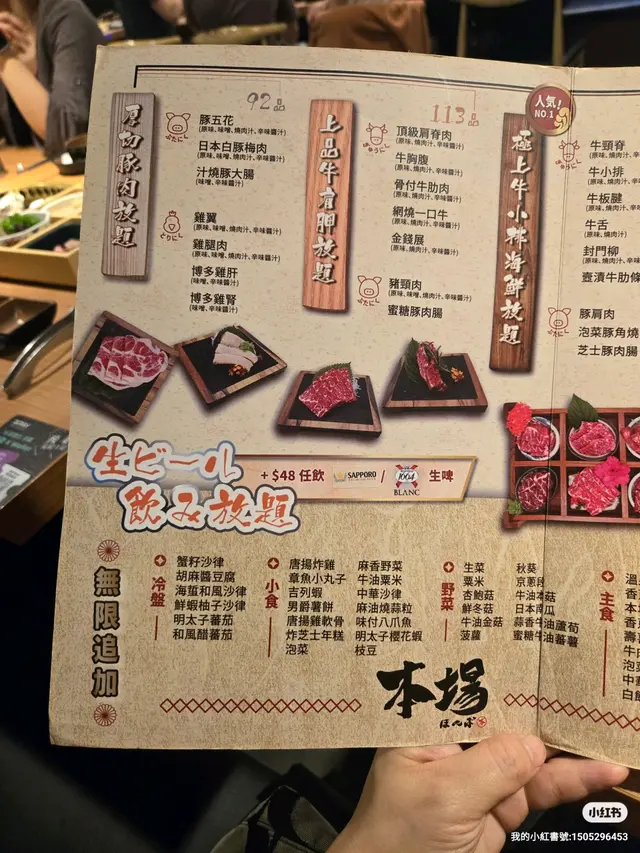 92品
厚切豚肉放題
ぶたにく
豚五花
(原味、味噌、燒肉汁、辛味醬汁)
日本白豚梅肉
(原味、味噌、燒肉汁、辛味醬汁)
汁燒豚大腸
(味噌、辛味醬汁)
とりにく
雞翼
(原味、味噌、燒肉汁、辛味醬汁)
雞腿肉
(原味、味噌、燒肉汁、辛味醬汁)
博多雞肝
(味噌、辛味醬汁)
博多雞腎
(味噌、辛味醬汁)
113品
上品牛肩胛放題
ぎゅうにく
頂級肩脊肉
(原味、燒肉汁、辛味醬汁)
牛胸腹
(原味、燒肉汁、辛味醬汁)
骨付牛肋肉
(原味、燒肉汁、辛味醬汁)
網燒一口牛
(原味、燒肉汁、辛味醬汁)
金錢展
(原味、燒肉汁、辛味醬汁)
ぶたにく
豬頸肉
(原味、味噌、燒肉汁、辛味醬汁)
蜜糖豚肉腸
人気!
NO.1
極上牛小排海鮮放題
牛頸脊
(原味、燒肉汁、辛味醬
牛小排
(原味、燒肉汁、辛味
牛板腱
(原味、燒肉汁、辛味
牛舌
(原味、燒肉汁、辛
封門柳
(原味、燒肉汁、辛味
壺漬牛肋條
豚肩肉
泡菜豚角燒
芝士豚肉腸
生ビール
飲み放題
+ $48 任飲
SAPPORO
/
1664
BLANC
生啤
無限追加
冷盤
蟹籽沙律
胡麻醬豆腐
海蜇和風沙律
鮮蝦柚子沙律
明太子蕃茄
和風醋蕃茄
小食
唐揚炸雞
章魚小丸子
吉列蝦
男爵薯餅
唐揚雞軟骨
炸芝士年糕
泡菜
麻香野菜
牛油粟米
中華沙律
麻油燒蒜粒
味付八爪魚
明太子櫻花蝦
枝豆
野菜
生菜
粟米
杏鮑菇
鮮冬菇
牛油金菇
菠蘿
秋葵
京蔥段
牛油本菇
日本南瓜
蒜香牛油蘆筍
蜜糖牛油蕃薯
主食
本場
ほんば
小红书
我的小紅書號:1505296453